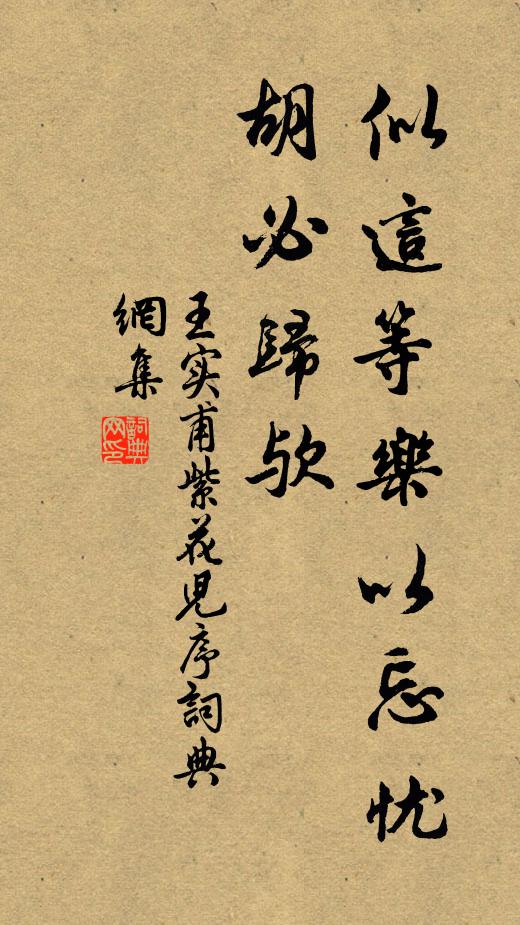 似這等樂以忘忧
胡必歸欤
王实甫紫花児序詞典
網集
詞典
网印